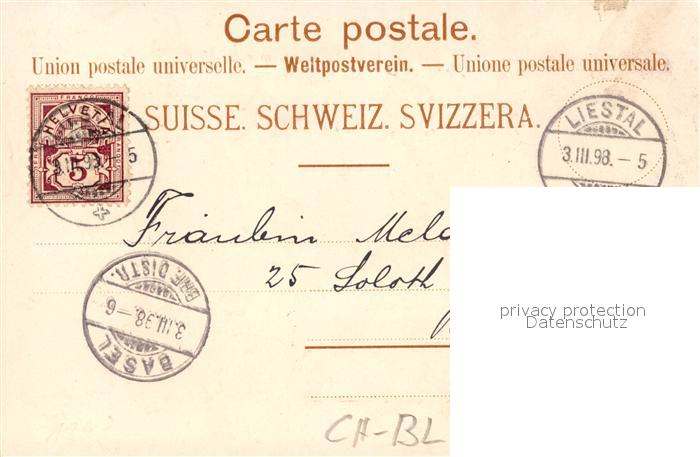 Carte postale.
Union postale universelle. — Weltpostverein. — Unione postale universale.
SUISSE. SCHWEIZ. SVIZZERA.
FRANCO
HELVETIA
5
3.III.98.-5
LIESTAL
3.III.98.-5
Fräulein
25 Soloth
BASEL
3.III.98.-6
BRF. DISTR.
privacy protection
Datenschutz
CH-BL